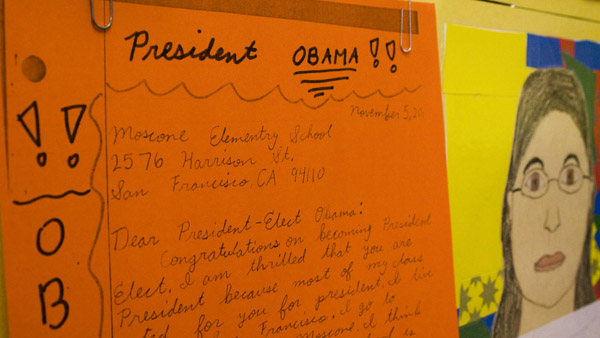 President OBAMA !!
November 5, 20
!!
O
B
Moscone Elementry School
2576 Harrison St.
San Francisco, CA 94110
Dear President-Elect Obama:
Congratulations on becoming President
Elect. I am thrilled that you are
President because most of my class
ted for you for president. I live
Francisco. I go to
Moscone. I think
is